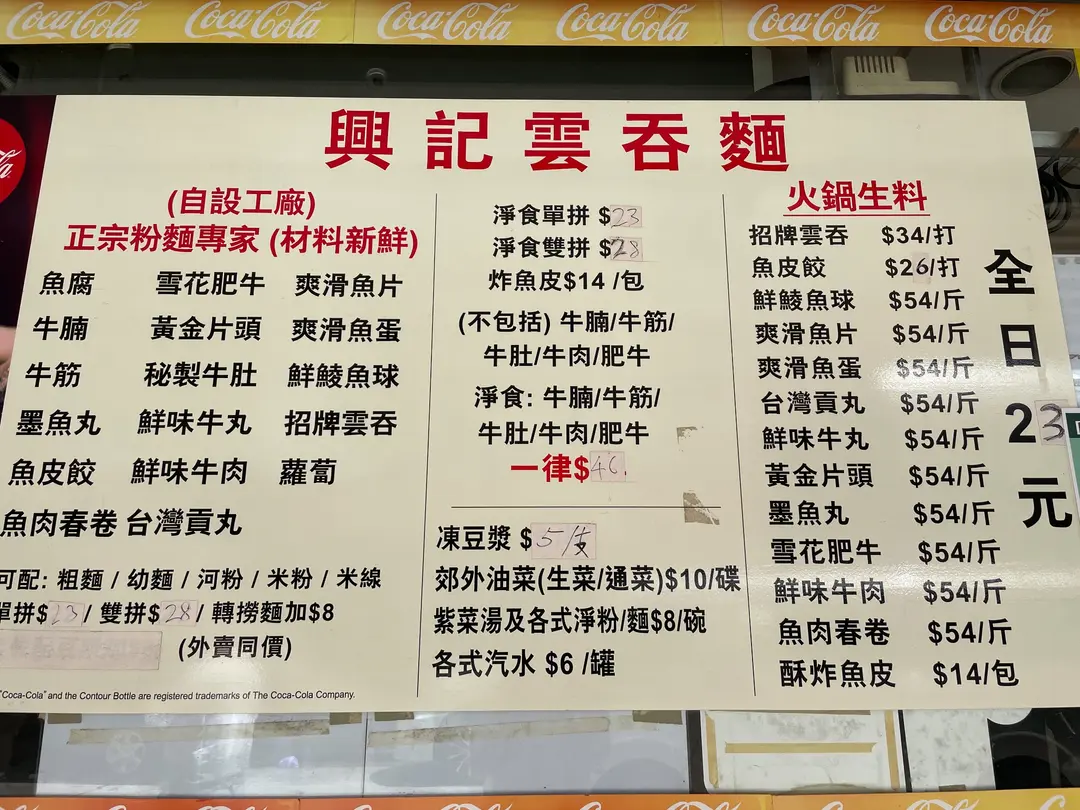 Coca-Cola Coca-Cola Coca-Cola Coca-Cola Coca-Cola Coca-Cola
興記雲吞麵
(自設工廠)
正宗粉麵專家 (材料新鮮)
魚腐 雪花肥牛 爽滑魚片
牛腩 黃金片頭 爽滑魚蛋
牛筋 秘製牛肚 鮮鯪魚球
墨魚丸 鮮味牛丸 招牌雲吞
魚皮餃 鮮味牛肉 蘿蔔
魚肉春卷 台灣貢丸
可配: 粗麵 / 幼麵 / 河粉 / 米粉 / 米線
單拼$23 / 雙拼$28 / 轉撈麵加$8
(外賣同價)
"Coca-Cola" and the Contour Bottle are registered trademarks of The Coca-Cola Company.
淨食單拼 $23
淨食雙拼 $28
炸魚皮$14 /包
(不包括) 牛腩/牛筋/
牛肚/牛肉/肥牛
淨食: 牛腩/牛筋/
牛肚/牛肉/肥牛
一律$46.
凍豆漿 $5/支
郊外油菜(生菜/通菜)$10/碟
紫菜湯及各式淨粉/麵$8/碗
各式汽水 $6 /罐
火鍋生料
招牌雲吞 $34/打
魚皮餃 $26/打
鮮鯪魚球 $54/斤
爽滑魚片 $54/斤
爽滑魚蛋 $54/斤
台灣貢丸 $54/斤
鮮味牛丸 $54/斤
黃金片頭 $54/斤
墨魚丸 $54/斤
雪花肥牛 $54/斤
鮮味牛肉 $54/斤
魚肉春卷 $54/斤
酥炸魚皮 $14/包
全日23元